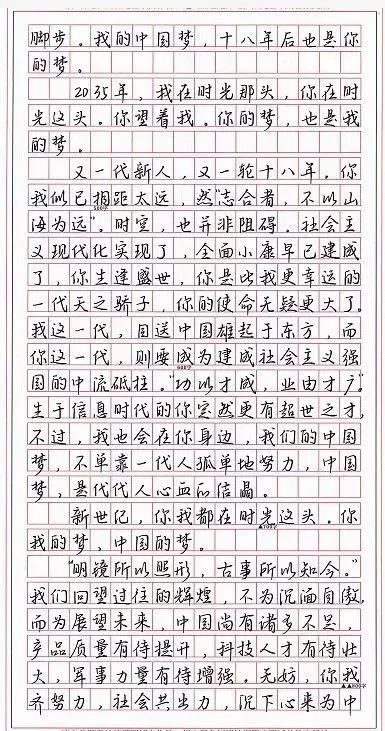 脚步。我的中国梦，十八年后也是你
的梦。
2035年，我在时光那头，你在时
光这头。你望着我。你的梦，也是我
的梦。
又一代新人，又一轮十八年。你
我似已相距太远，然“志合者，不以山
海为远”。时空，也并非阻碍。社会主
义现代化实现了，全面小康早已建成
了，你生逢盛世，你是比我更幸运的
一代天之骄子，你的使命无疑更大了。
我这一代，目送中国雄起于东方，而
你这一代，则要成为建成社会主义强
600字
国的中流砥柱。“功以才成，业由才广。”
生于信息时代的你定然更有超世之才，
不过，我也会在你身边，我们的中国
梦，不单靠一代人孤单地努力，中国
梦，是代代人心血的结晶。
新世纪，你我都在时光这头。你
我的梦，中国的梦。
“明镜所以照形，古事所以知今。”
我们回望过往的辉煌，不为沉湎自傲，
而为展望未来，中国尚有诸多不足，
产品质量有待提升，科技人才有待壮
大，军事力量有待增强。无妨，你我
▲800字
齐努力，社会共出力，沉下心来为中